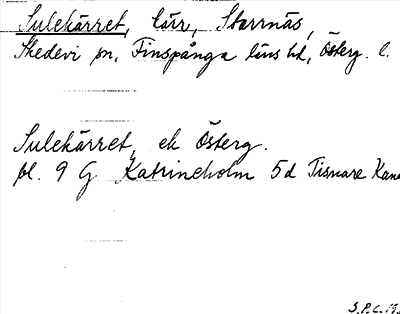 Sulekärret, kärr, Starrnäs,
Skedevi sn, Finspånga läns hd, Österg. l.
Sulekärret, ek Österg.
bl. 9 G Katrineholm 5d Tisnare Kana
S.P.C. 193